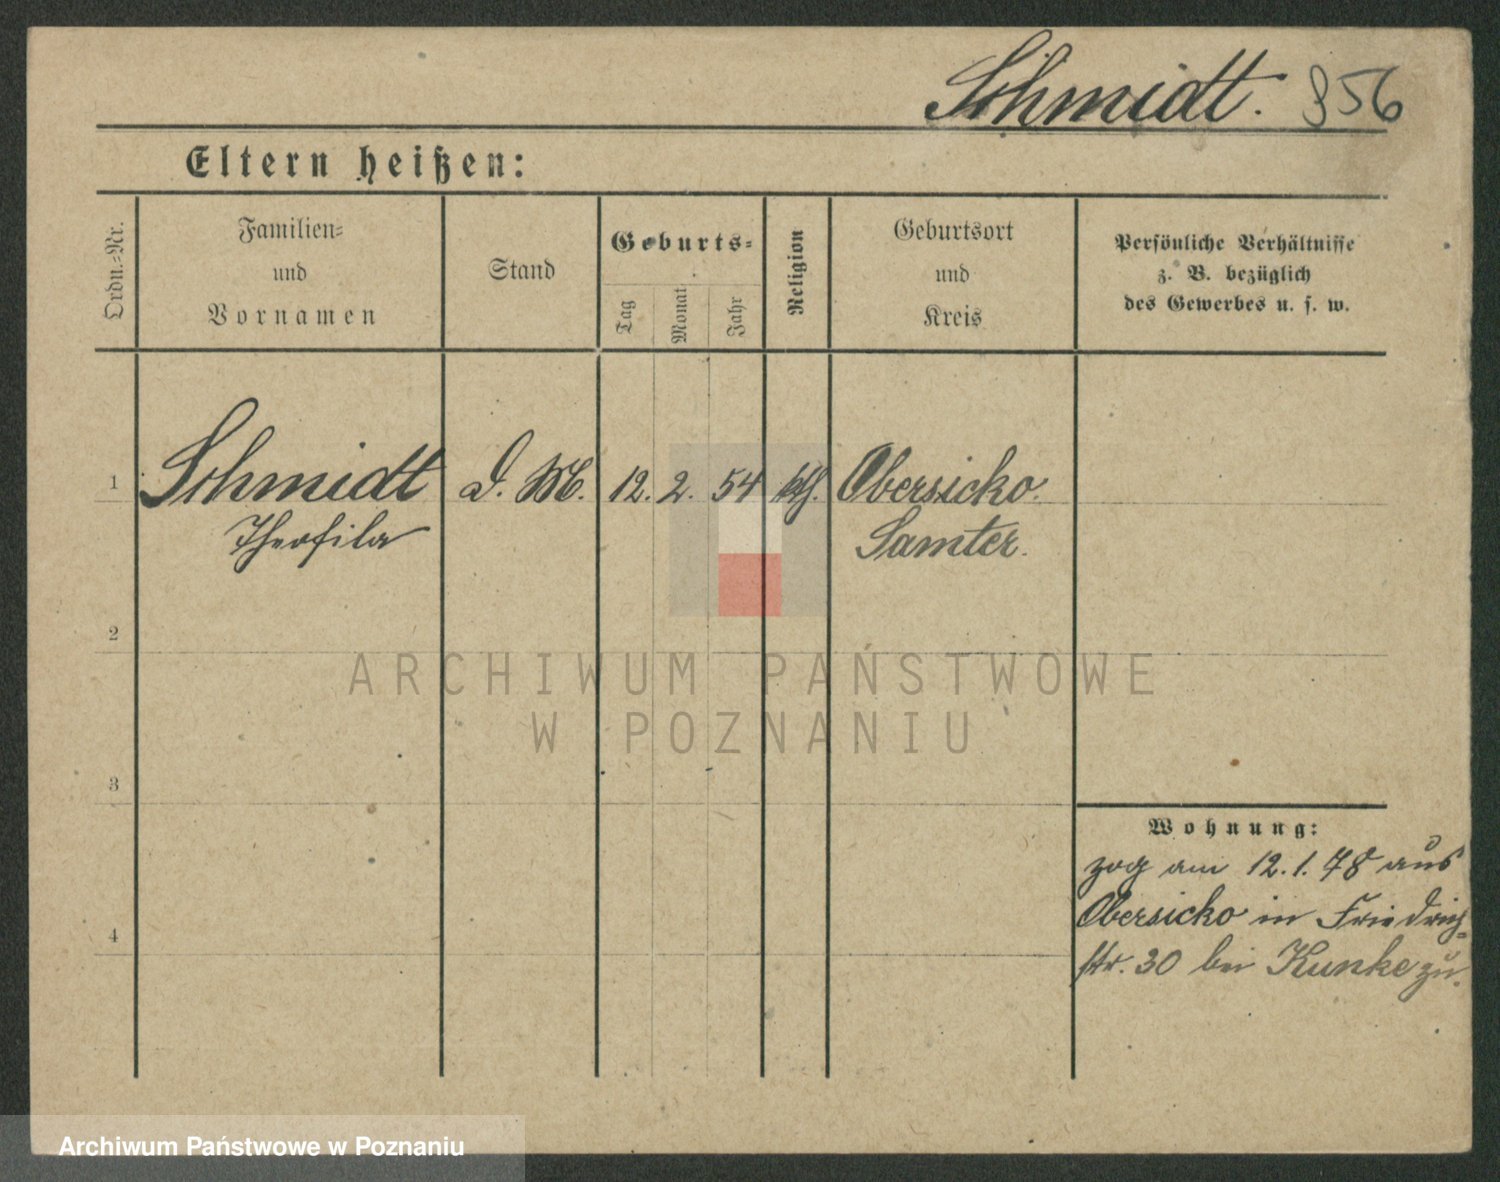 Schmidt. 856
Eltern heißen:
Ordn.=Nr.
Familien=
und
Vornamen
Stand
Geburts=
Tag
Monat
Jahr
Religion
Geburtsort
und
Kreis
Persönliche Verhältnisse
z. B. bezüglich
des Gewerbes u. s. w.
1 Schmidt D. M. 12. 2. 54 kth. Obersicko.
Theofila Samter.
2
ARCHIWUM PAŃSTWOWE
W POZNANIU
3
Wohnung:
zog am 12.1.78 aus
Obersicko in Friedrich=
4
str. 30 bei Kunke zu.
Archiwum Państwowe w Poznaniu